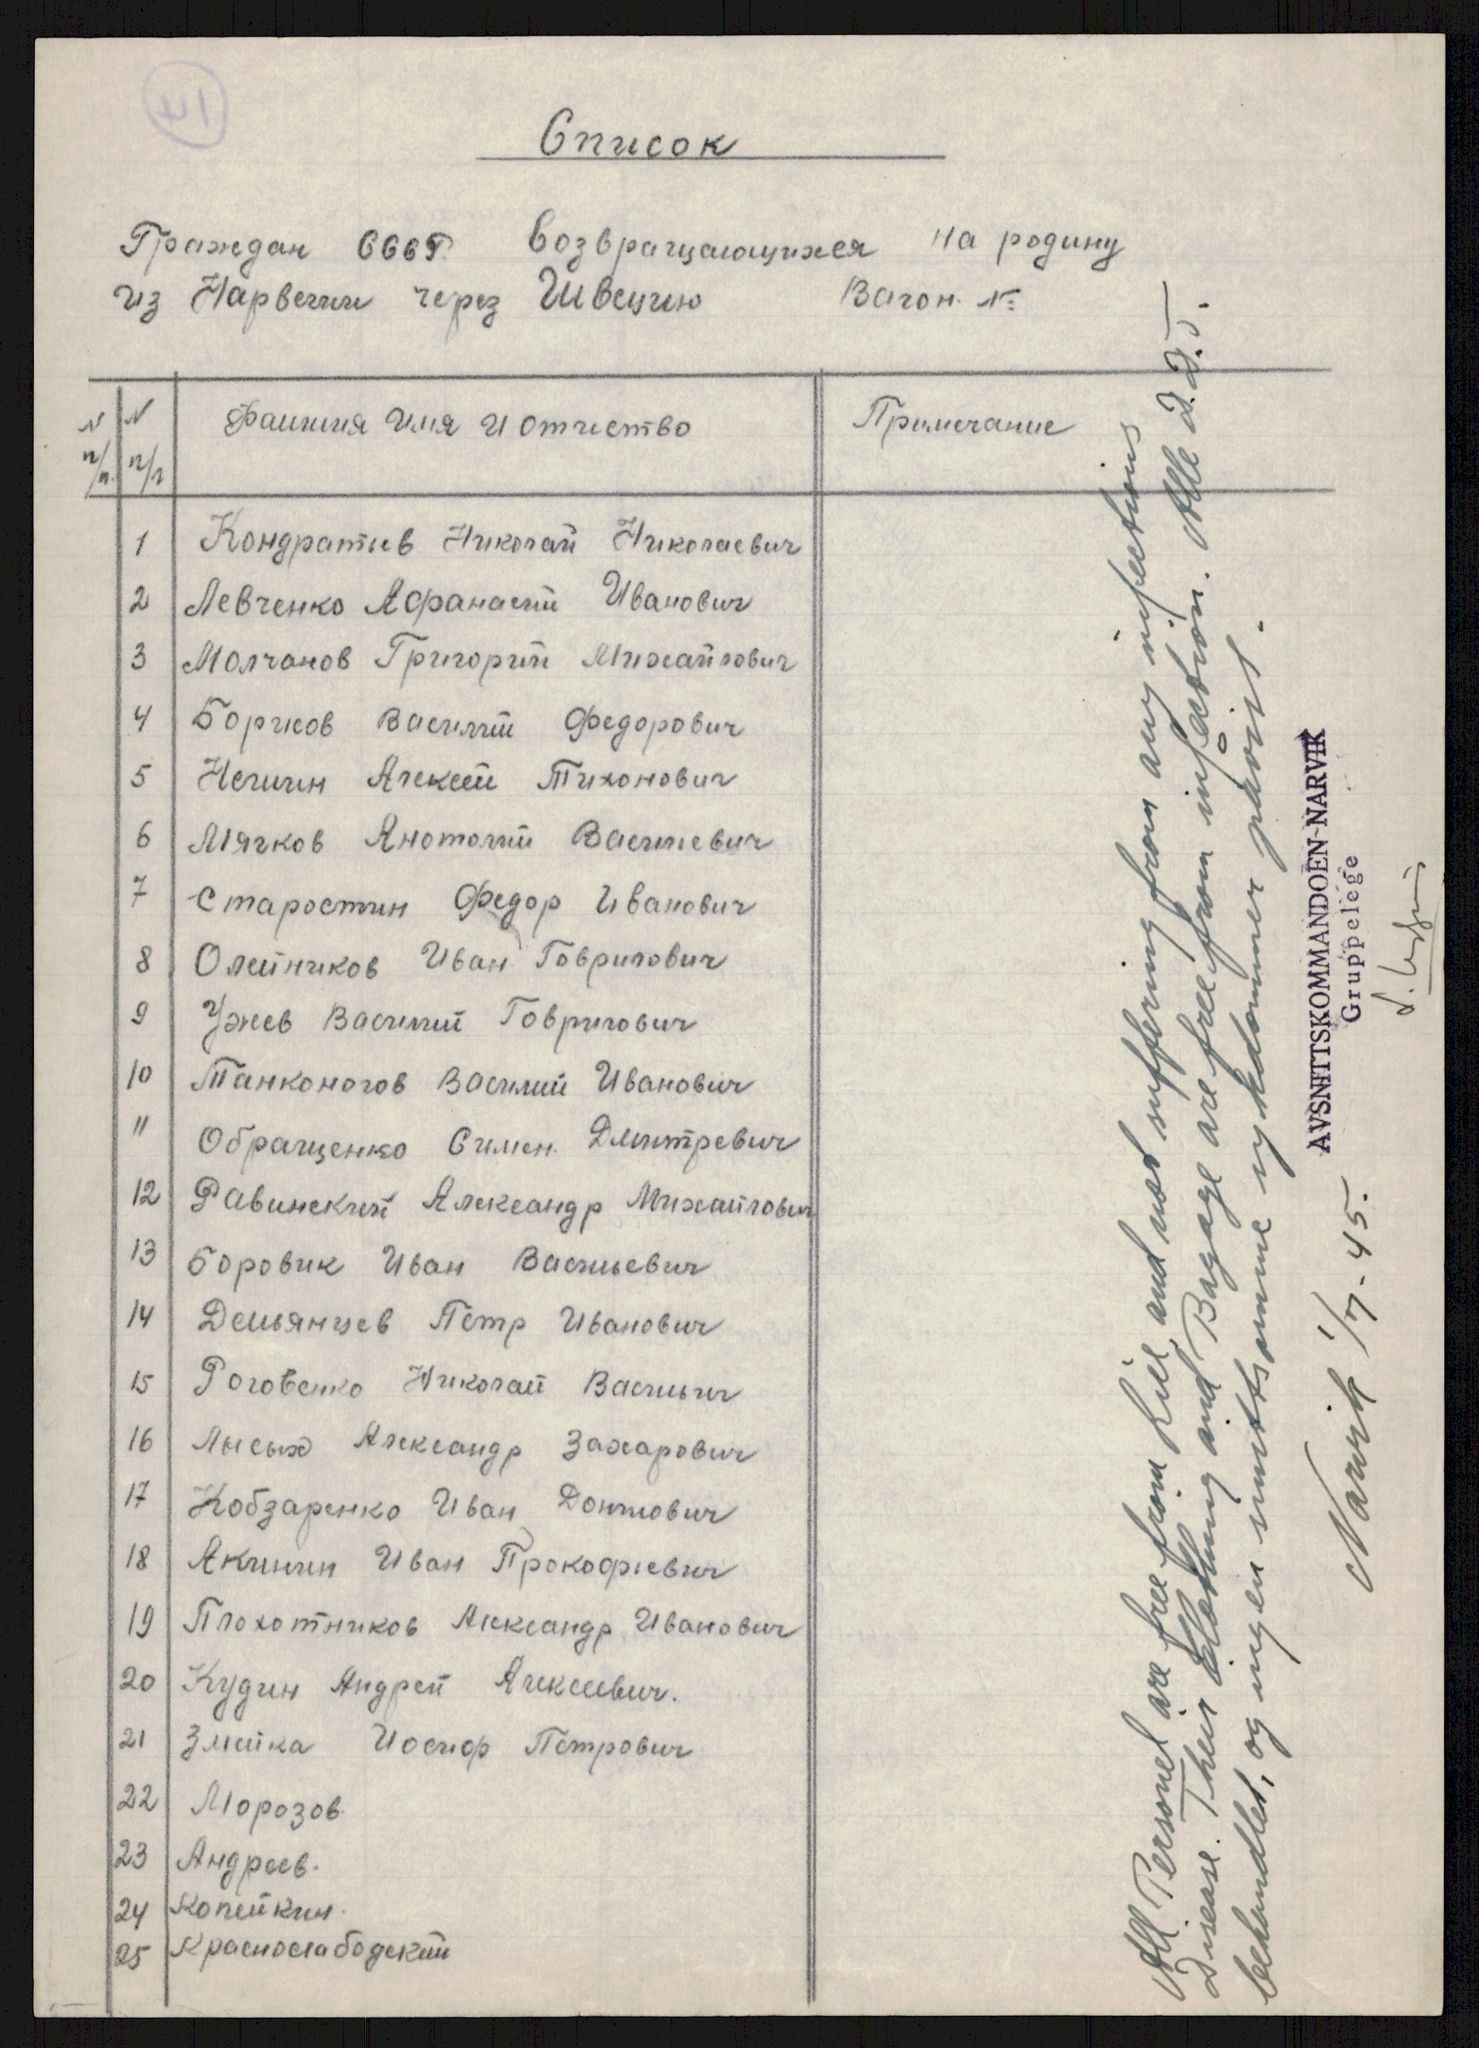 14
Список
Граждан СССР. возвращающихся на родину
из Нарвегии через Швецию Вагон. №:
N п/п. N п/п Фамилия Имя и отчество Примечание
1 Кондратьев Николай Николаевич
2 Левченко Афанасий Иванович
3 Молчанов Григорий Михайлович
4 Борисов Василий Федорович
5 Алексей Тихонович
6 Мягков Анотолий Васильевич
7 Старостин Федор Иванович
8 Олейников Иван Говрилович
9 Ужев Василий Говрилович
10 Танконогов Василий Иванович
11 Обращенко Симен. Дмитревич
12 Равинский Александр Михайлович
13 Боровик Иван Васильевич
14 Демьянцев Пётр Иванович
15 Роговенко Николай Васильич
16 Лысых Александр Захарович
17 Кобзаренко Иван
18 Акинин Иван Прокофьевич
19 Плохотников Александр Иванович
20 Кудин Андрей Алексеевич.
21 Змейка Иосиф Петрович
22 Морозов.
23 Андреев.
24 Копейкин.
25 Краснослабодский
All Personel are free from and not suffering from any infectious
Disease. Their Clothing and Bagage are free from infection. Alle
behandlet, og ingen smittsomme sykdommer påvist.
AVSNITTSKOMMANDOEN-NARVIK
Gruppelege
Narvik 1/7-45.